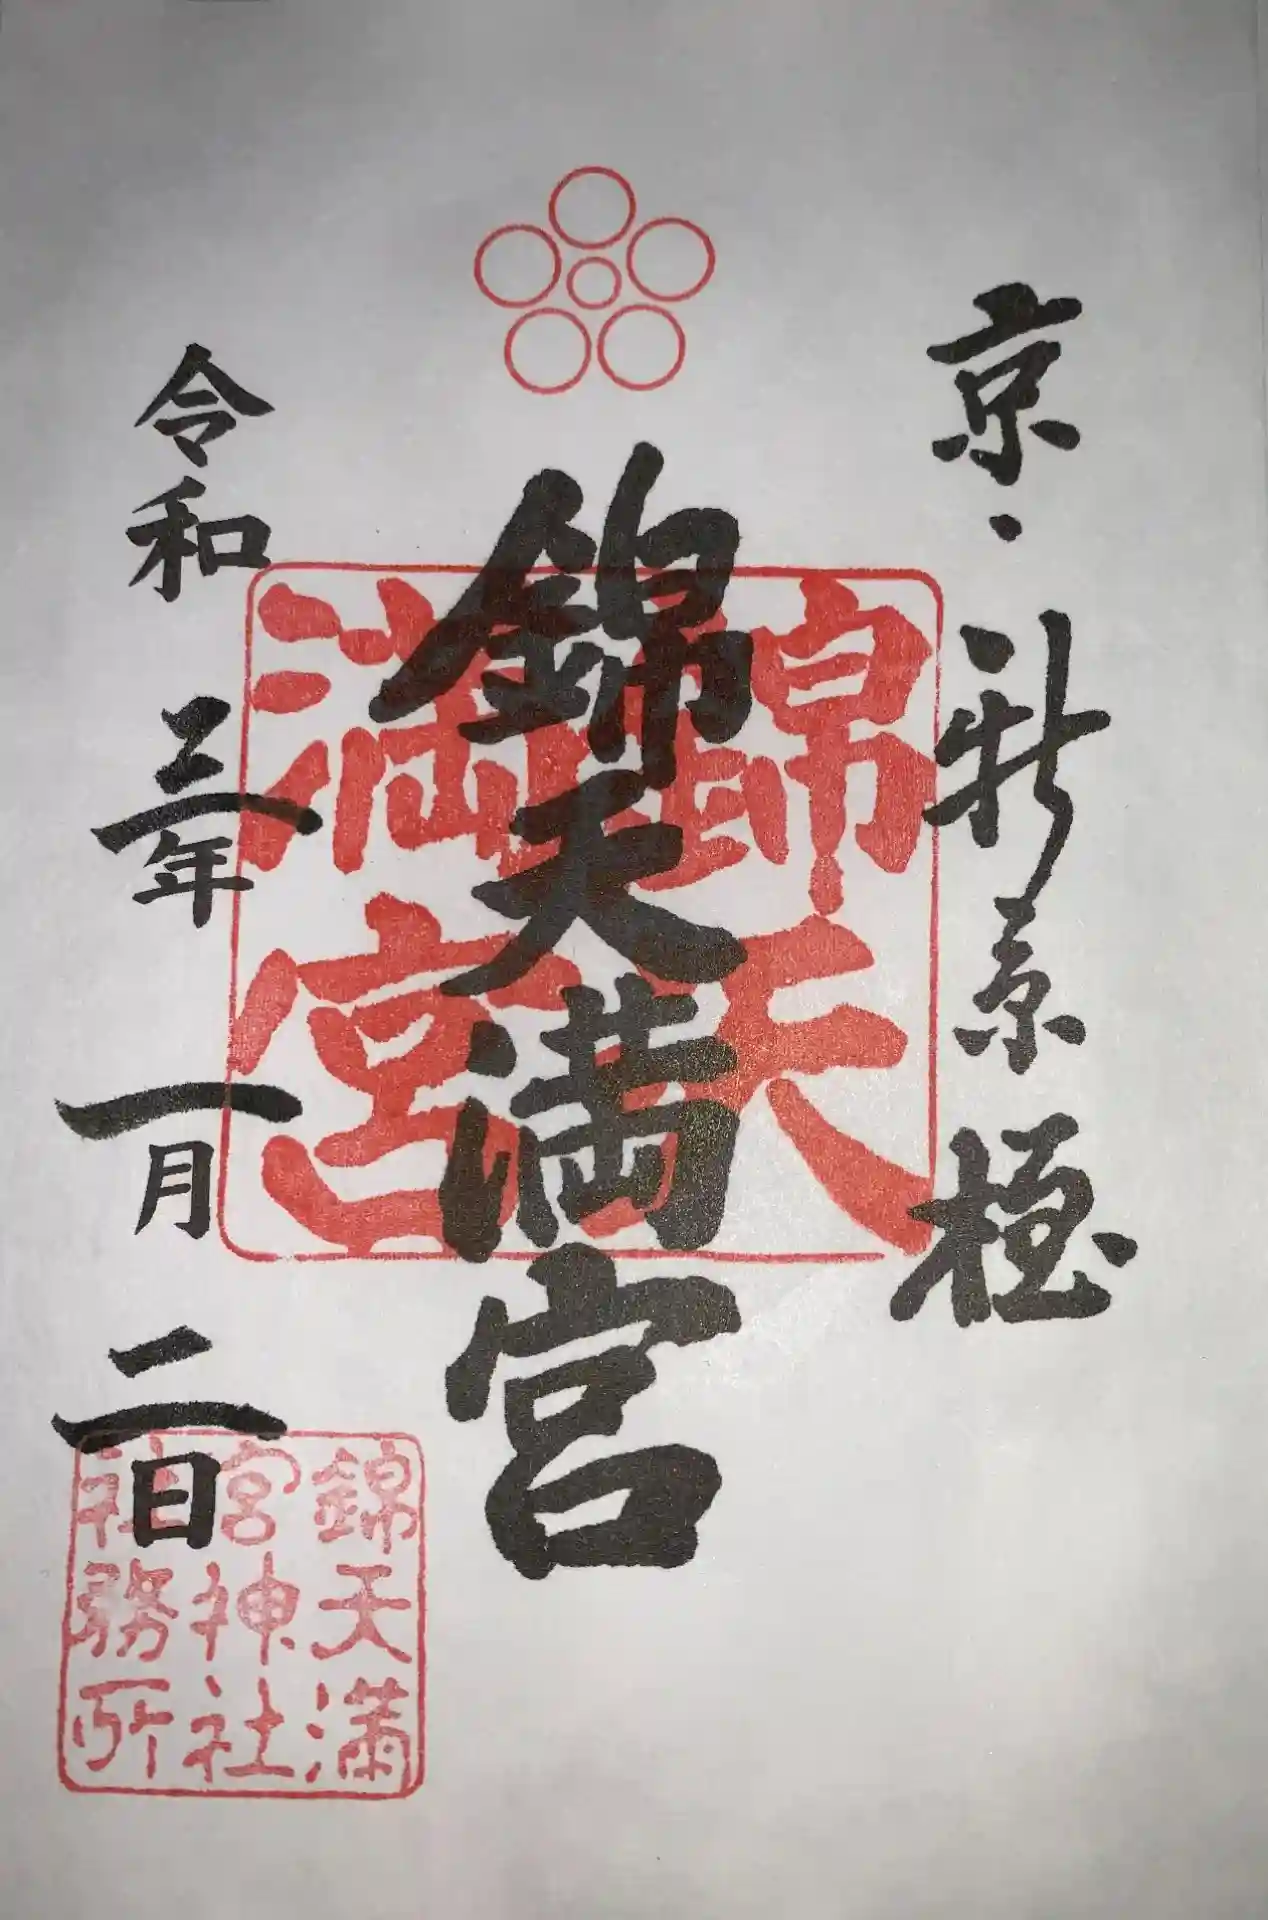 京・新京極
錦天満宮
錦天
満宮
令和三年一月二日
錦天満
宮神社
社務所